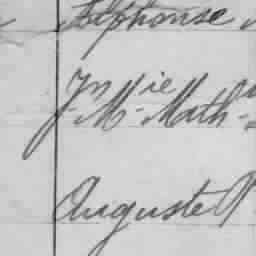 Alphonse
Jn ie
M- Math-
Auguste